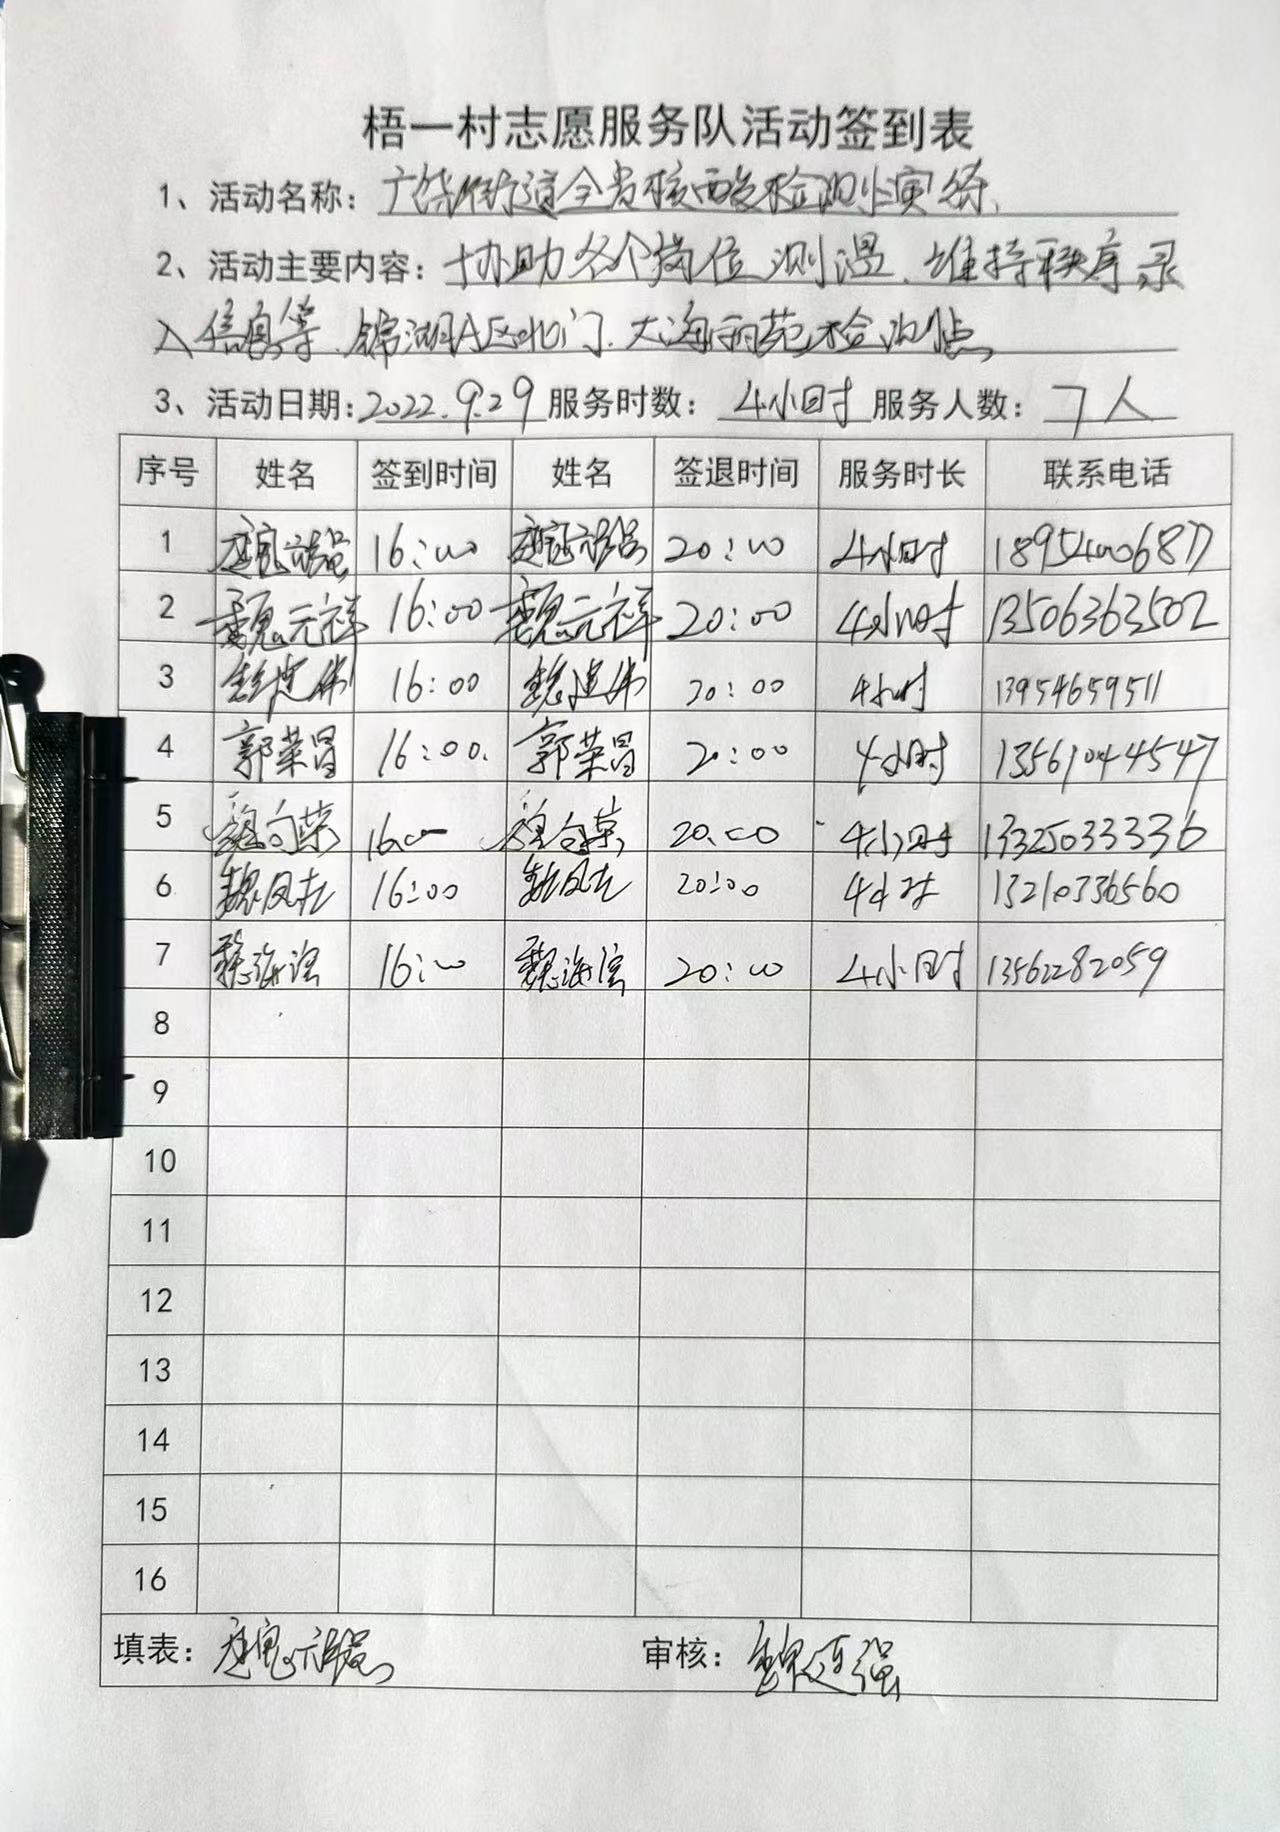 梧一村志愿服务队活动签到表
1、活动名称：广饶街道全员核酸检测演练
2、活动主要内容：协助各个岗位测温、维持秩序、录
入信息等、锦湖A区北门、大海丽苑检测点
3、活动日期：2022.9.29 服务时数：4小时 服务人数：7人
序号 姓名 签到时间 姓名 签退时间 服务时长 联系电话
1 16:00 20:00 4小时 18954006877
2 魏元祥 16:00 魏元祥 20:00 4小时 13506363502
3 魏建伟 16:00 魏建伟 20:00 4小时 13954659511
4 郭荣昌 16:00 郭荣昌 20:00 4小时 13561044547
5 16:00 20:00 4小时 13325033336
6 16:00 20:00 4小时 13210336560
7 16:00 20:00 4小时 13562282059
8
9
10
11
12
13
14
15
16
填表： 审核：魏延强